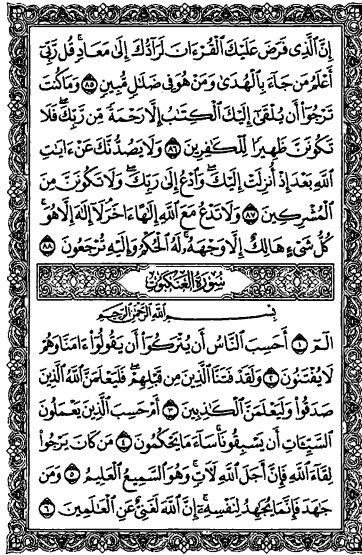 إِنَّ ٱلَّذِى فَرَضَ عَلَيْكَ ٱلْقُرْءَانَ لَرَآدُّكَ إِلَىٰ مَعَادٍ قُل رَّبِّىٓ
أَعْلَمُ مَن جَآءَ بِٱلْهُدَىٰ وَمَنْ هُوَ فِى ضَلَـٰلٍ مُّبِينٍ ٨٥ وَمَا كُنتَ
تَرْجُوٓا۟ أَن يُلْقَىٰٓ إِلَيْكَ ٱلْكِتَـٰبُ إِلَّا رَحْمَةً مِّن رَّبِّكَ فَلَا
تَكُونَنَّ ظَهِيرًا لِّلْكَـٰفِرِينَ ٨٦ وَلَا يَصُدُّنَّكَ عَنْ ءَايَـٰتِ
ٱللَّهِ بَعْدَ إِذْ أُنزِلَتْ إِلَيْكَ وَٱدْعُ إِلَىٰ رَبِّكَ وَلَا تَكُونَنَّ مِنَ
ٱلْمُشْرِكِينَ ٨٧ وَلَا تَدْعُ مَعَ ٱللَّهِ إِلَـٰهًا ءَاخَرَ لَآ إِلَـٰهَ إِلَّا هُوَ
كُلُّ شَىْءٍ هَالِكٌ إِلَّا وَجْهَهُۥ لَهُ ٱلْحُكْمُ وَإِلَيْهِ تُرْجَعُونَ ٨٨
سُورَةُ العَنكَبُوتِ
بِسْمِ ٱللَّهِ ٱلرَّحْمَـٰنِ ٱلرَّحِيمِ
الٓمٓ ١ أَحَسِبَ ٱلنَّاسُ أَن يُتْرَكُوٓا۟ أَن يَقُولُوٓا۟ ءَامَنَّا وَهُمْ
لَا يُفْتَنُونَ ٢ وَلَقَدْ فَتَنَّا ٱلَّذِينَ مِن قَبْلِهِمْ فَلَيَعْلَمَنَّ ٱللَّهُ ٱلَّذِينَ
صَدَقُوا۟ وَلَيَعْلَمَنَّ ٱلْكَـٰذِبِينَ ٣ أَمْ حَسِبَ ٱلَّذِينَ يَعْمَلُونَ
ٱلسَّيِّـَٔاتِ أَن يَسْبِقُونَا سَآءَ مَا يَحْكُمُونَ ٤ مَن كَانَ يَرْجُوا۟
لِقَآءَ ٱللَّهِ فَإِنَّ أَجَلَ ٱللَّهِ لَـَٔاتٍ وَهُوَ ٱلسَّمِيعُ ٱلْعَلِيمُ ٥ وَمَن
جَـٰهَدَ فَإِنَّمَا يُجَـٰهِدُ لِنَفْسِهِۦٓ إِنَّ ٱللَّهَ لَغَنِىٌّ عَنِ ٱلْعَـٰلَمِينَ ٦